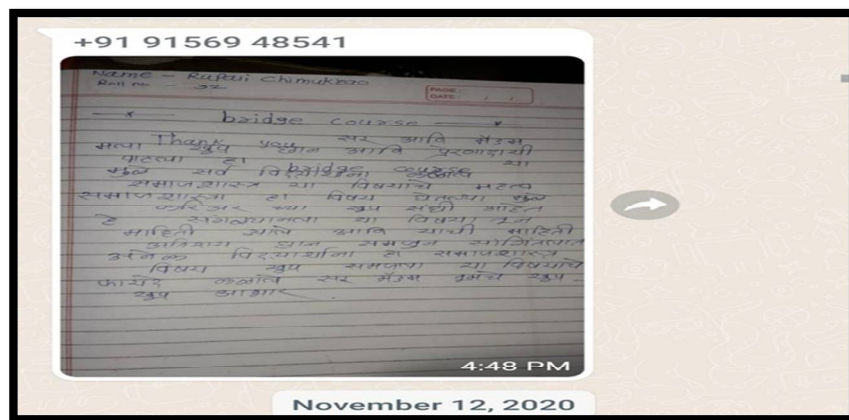 +91 91569 48541
Name - Rupali Chimukrao
Roll no - 32
PAGE:
DATE:
bridge course
Thank you सर आणि मॅडम
मला खूप छान आणि प्रेरणादायी
वाटला हा bridge course या
मुळे सर्व विद्यार्थ्यांना कळाले
समाजशास्त्र या विषयाचे महत्व
समाजशास्त्र हा विषय घेतल्या मुळे
च्या खूप संधी आहेत
हे सगळ्यांनला या विषया तून
माहिती आले आणि याची माहिती
अतिशय छान समजून सांगितलात
अनेक विद्यार्थ्यांना हा समाजशास्त्र
विषय खूप समजला या विषयाचे
फायदे कळाले सर मॅडम तुमचे खूप -
खूप आभार
4:48 PM
November 12, 2020